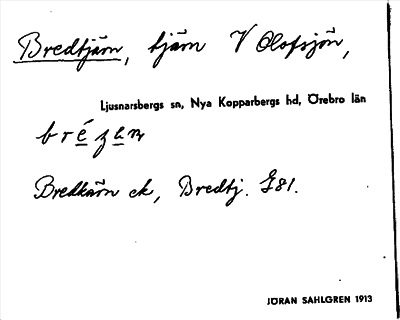 Bredtjärn, tjärn V Olofsjön,
Ljusnarsbergs sn, Nya Kopparbergs hd, Örebro län
Bredkärn ek, Bredtj. G81.
JÖRAN SAHLGREN 1913